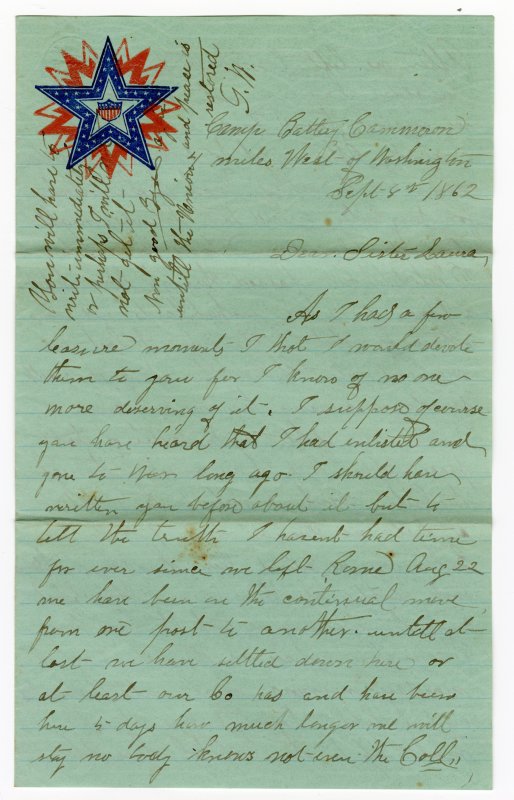 You will have to
write immediately
or perhaps I will
not get it
from good Bye
untill the Union and peace is
restored
G. W.
Camp Battery Cammeron
4 miles West of Washington
Sept 8th 1862
Dear Sister Laura,
As I had a few
leasure moments I thot I would devote
them to you for I know of no one
more deserving of it. I suppose of course
you have heard that I had enlisted and
gone to War long ago. I should have
written you before about it but to
tell the truth I havent had time
for ever since we left Rome Aug 22
we have been on the continual move
from one post to another. untill at
last we have settled down here or
at least our Co has and have been
here 5 days how much longer we will
stay no body knows not even the Coll,,